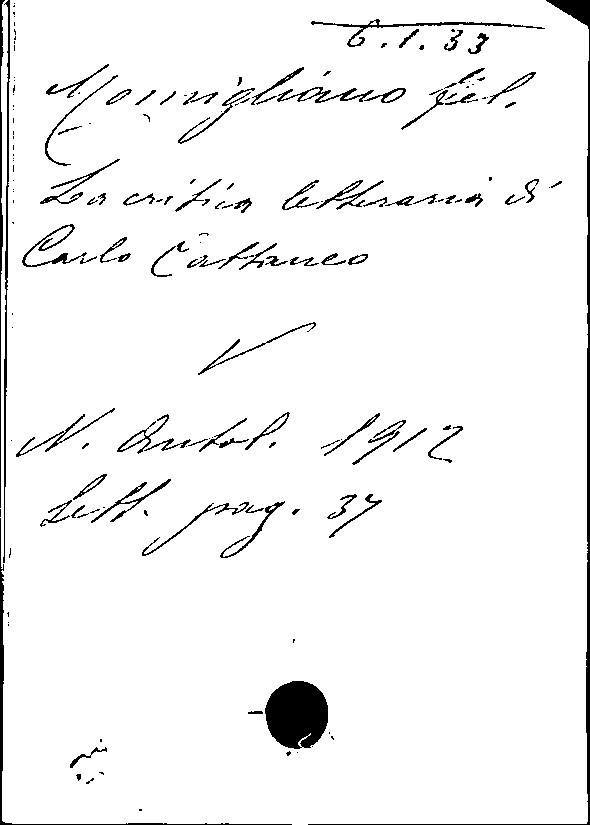 6.1.33
Momigliano Fel.
La critica letteraria di
Carlo Cattaneo
V
N. Antol. 1912
Sett. pag. 37